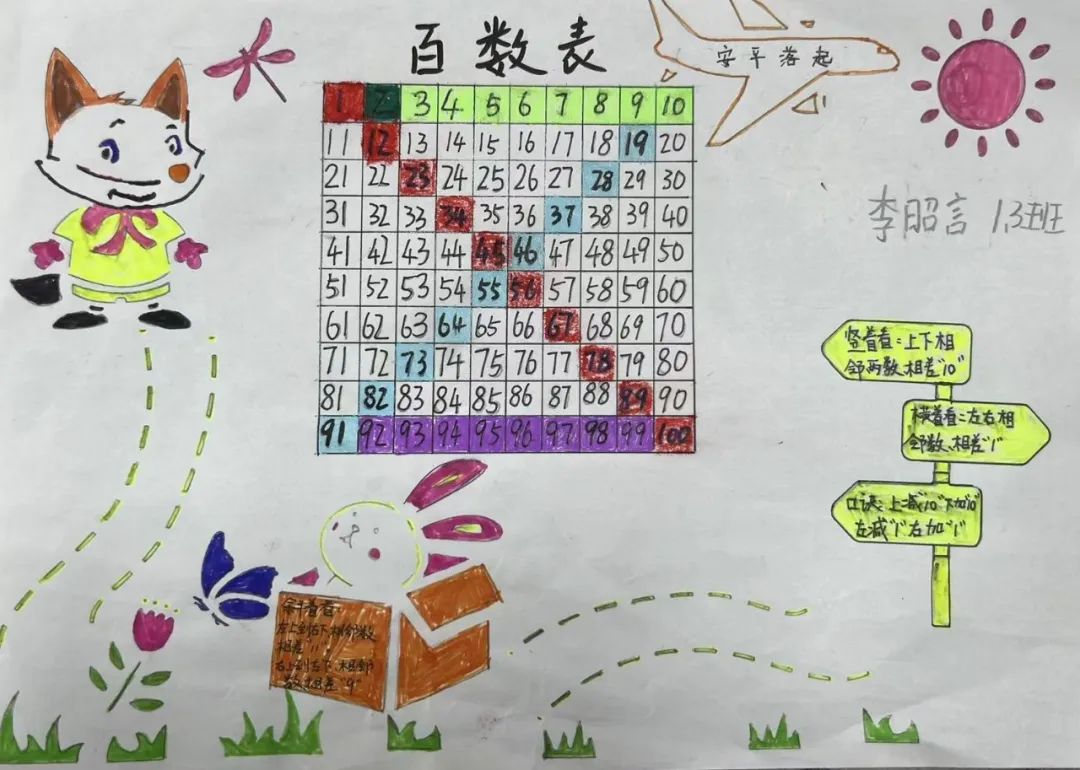 百数表
安平落起
1 2 3 4 5 6 7 8 9 10
11 12 13 14 15 16 17 18 19 20
21 22 23 24 25 26 27 28 29 30
31 32 33 34 35 36 37 38 39 40
41 42 43 44 45 46 47 48 49 50
51 52 53 54 55 56 57 58 59 60
61 62 63 64 65 66 67 68 69 70
71 72 73 74 75 76 77 78 79 80
81 82 83 84 85 86 87 88 89 90
91 92 93 94 95 96 97 98 99 100
李昭言 1.3班
竖着看:上下相
邻两数,相差"10"
横着看:左右相
邻数、相差"1"
口诀:上减"10"下加"10"
左减"1"右加"1"
斜着看:
左上到右下,相邻数
相差"11"
右上到左下,相邻
数,相差"9"